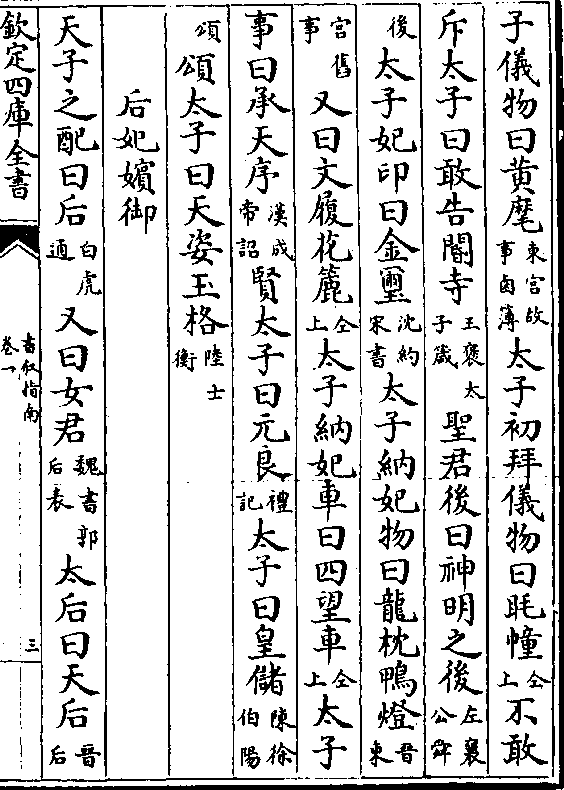 子儀物曰黄麾東宮故事鹵簿太子初拜儀物曰毦幢仝上不敢
斥太子曰敢告閽寺王褒太子箴聖君後曰神明之後左襄公舜
後太子妃印曰金璽沈約宋書太子納妃物曰龍枕鴨燈晉東
宮舊事又曰文履花簏仝上太子納妃車曰四望車仝上太子
事曰承天序漢成帝詔賢太子曰元良禮記太子曰皇儲陳徐伯陽
頌頌太子曰天姿玉格陸士衡
后妃嬪御
天子之配曰后白虎通又曰女君魏書郭后表太后曰天后晉后
欽定四庫全書
書叙指南
卷一
三